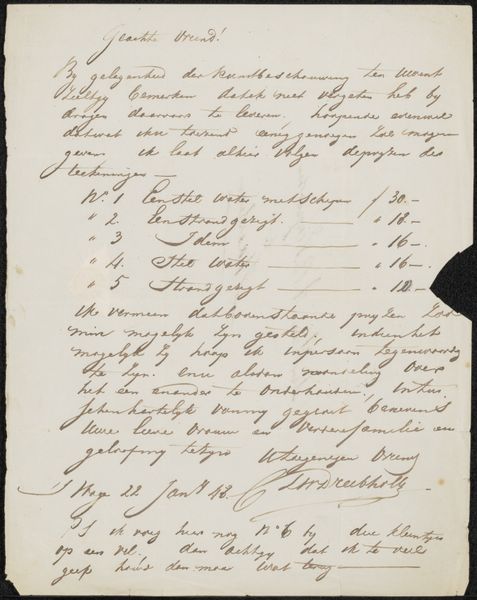 Geachte Vriend!
By gelegenheid der kunstbeschouwing ten Uwent
zult gy bemerken dat ik niet vergeten heb by
dragen daarvoor te leveren. hoopende evenwel
dat wat ik u toezend eenig genoegen zal mogen
geven ik laat alhier volgen de pryzen der
teekeningen —
No. 1 Een stel water met schepen f 30.–
" 2. Een strandgezigt. — " 18.–
" 3 Idem — " 16–.
" 4. Stel water — " 16–.
" 5 Strandgezigt — "
ik vermeen dat bovenstaande pryzen zoo
min mogelyk zyn gesteld, indien het
mogelyk zy hoop ik in persoon tegenwoordig
te zyn. en u alsdan mondeling over
het een en ander te onderhouden,
hartelyk van my gegroet benevens
Uwe lieve vrouw en verdere familie en
geloof my te zyn Uw toegenegen Vriend
CL W Dreibholtz
S Hage 22 Jany 48.
PS ik voeg hier nog No 6 by drie kleintjes
op een vel. dan acht gy dat ik te veel
geef houd dan maar wat terug —